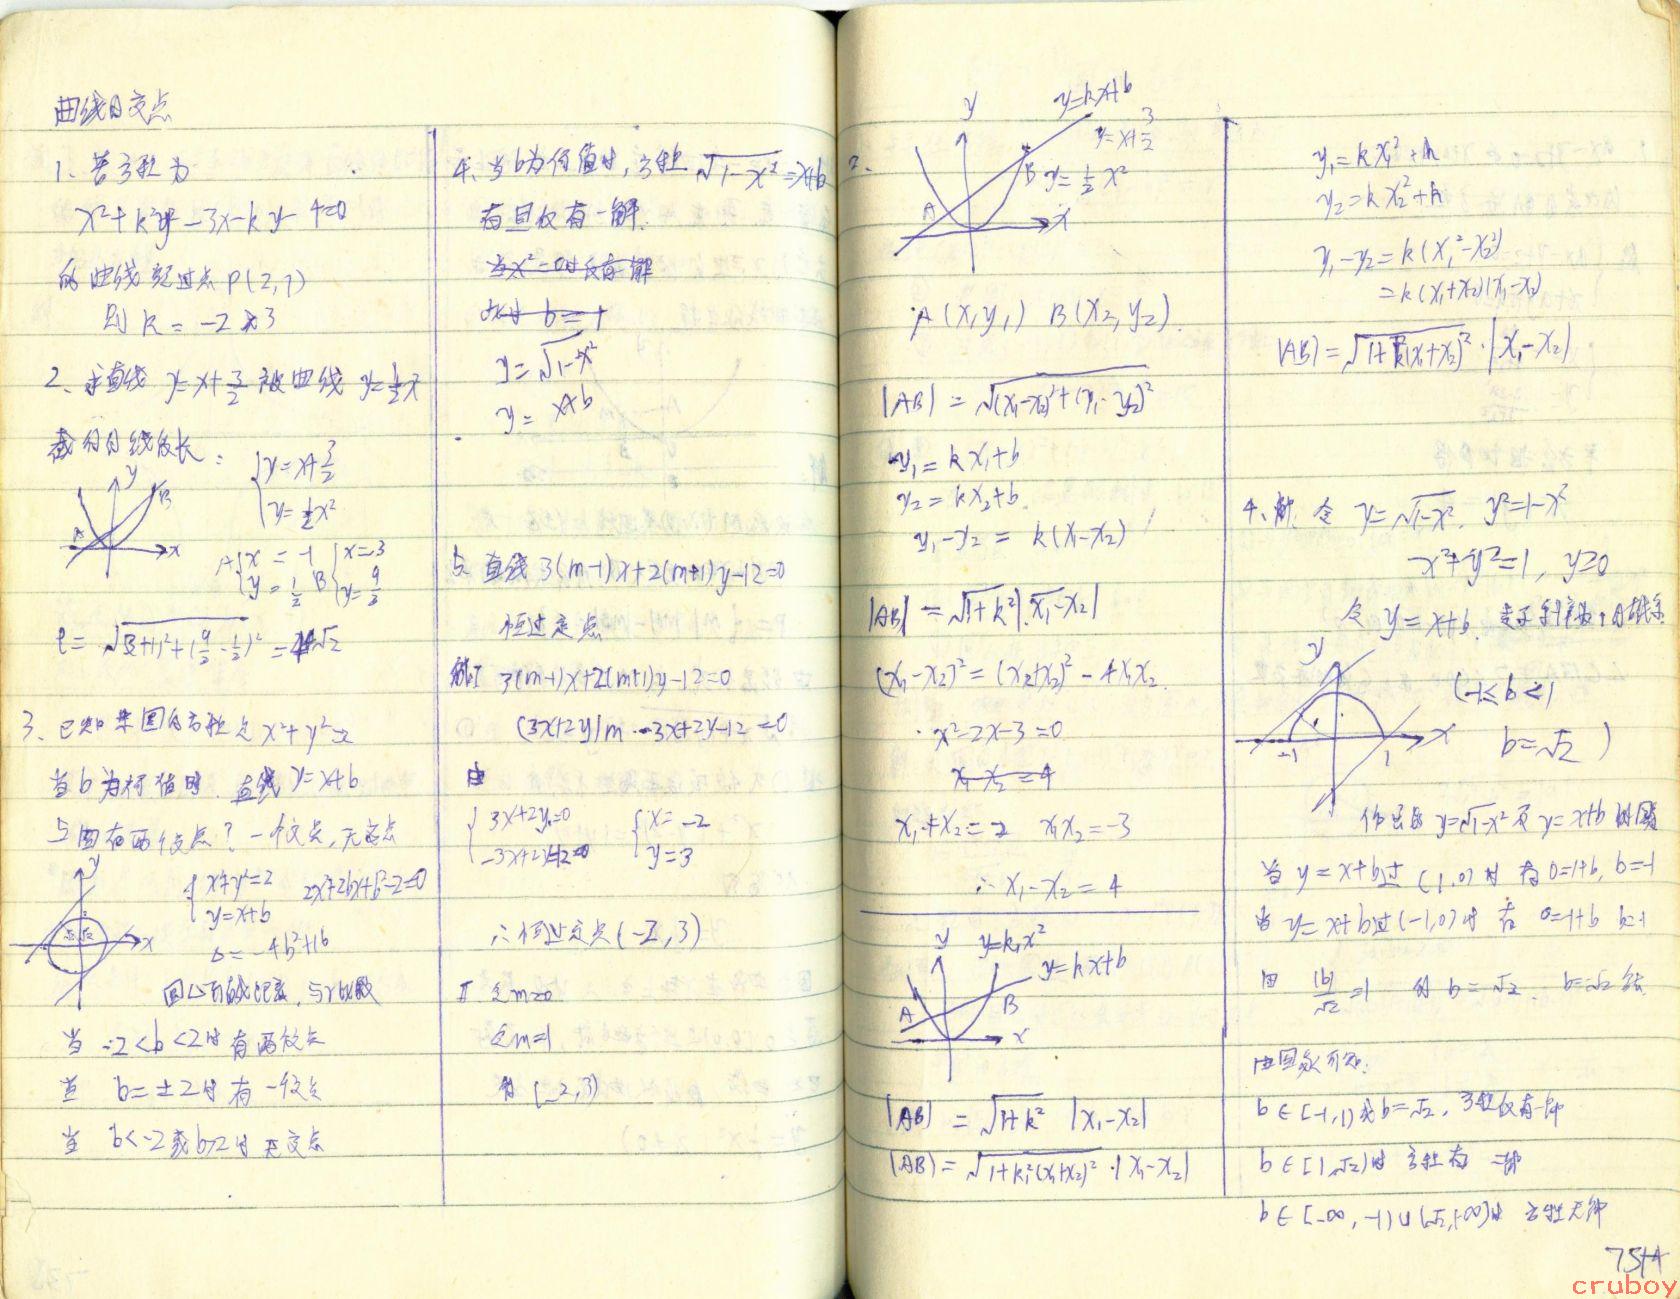 曲线的交点
1、若方程为
x²+k²y²-3x-ky-4=0
的曲线经过点P(2,1)
则 k = -2或3
2、求直线 y=x+3/2 被曲线 y=½x²
截得的线段长:
{y=x+3/2
{y=½x²
y
A B
x
A{x=-1 {x=3
{y=1/2 B {y=9/2
l=√(3+1)²+(9/2-1/2)² =4√2
3、已知某圆的方程是x²+y²=2
当b为何值时,直线y=x+b
与圆有两个交点?一个交点,无交点
y
x
{x²+y²=2 2x²+2bx+b²-2=0
{y=x+b
Δ=-4b²+16
圆心到直线距离,与r比较
当 -2<b<2时有两交点
当 b=±2时有一个交点
当 b<-2或b>2时无交点
4、当b为何值时,方程√1-x²=x+b
有且仅有一解.
当x²=0时仅有一解
b=1
y=√1-x²
y= x+b
5、直线3(m-1)x+2(m+1)y-12=0
恒过定点
解I 3(m-1)x+2(m+1)y-12=0
(3x+2y)m-3x+2y-12=0
由
{3x+2y=0 {x=-2
{-3x+2y-12=0 {y=3
∴恒过定点(-2,3)
II 令m=0
令m=1
得(-2,3)
2.
y y=kx+b
y=x+3/2
A B y=½x²
x
A(x₁y₁) B(x₂,y₂).
|AB| = √(x₁-x₂)²+(y₁-y₂)²
y₁=kx₁+b
y₂=kx₂+b.
y₁-y₂ = k(x₁-x₂)
|AB| =√1+k²|x₁-x₂|
(x₁-x₂)²=(x₁+x₂)²-4x₁x₂
x²-2x-3=0
x₁-x₂=4
x₁+x₂=2 x₁x₂=-3
∴x₁-x₂=4
y y=k₁x²
y=kx+b
A B
x
|AB| = √1+k² |x₁-x₂|
|AB|=√1+k₁²(x₁+x₂)²·|x₁-x₂|
y₁=kx₁²+h
y₂=kx₂²+h
y₁-y₂=k(x₁²-x₂²)
=k(x₁+x₂)(x₁-x₂)
|AB|=√1+k²(x₁+x₂)²·|x₁-x₂|
4、解.令 y=√1-x². y²=1-x²
x²+y²=1, y≥0
令y=x+b. 表示斜率为1的
y
-1 1 x
(-1≤b<1
b=√2 )
作出的y=√1-x²及y=x+b的图
当y=x+b过(1,0)时 有0=1+b, b=-1
当y=x+b过(-1,0)时 有 0=-1+b b=1
由 |b|/√2=1 得 b=√2.
由图象可知:
b∈[-1,1)或b=√2,方程仅有一解
b∈[1,√2)时 方程有 二解
b∈[-∞,-1)∪(√2,+∞)时 方程无解
cruboy